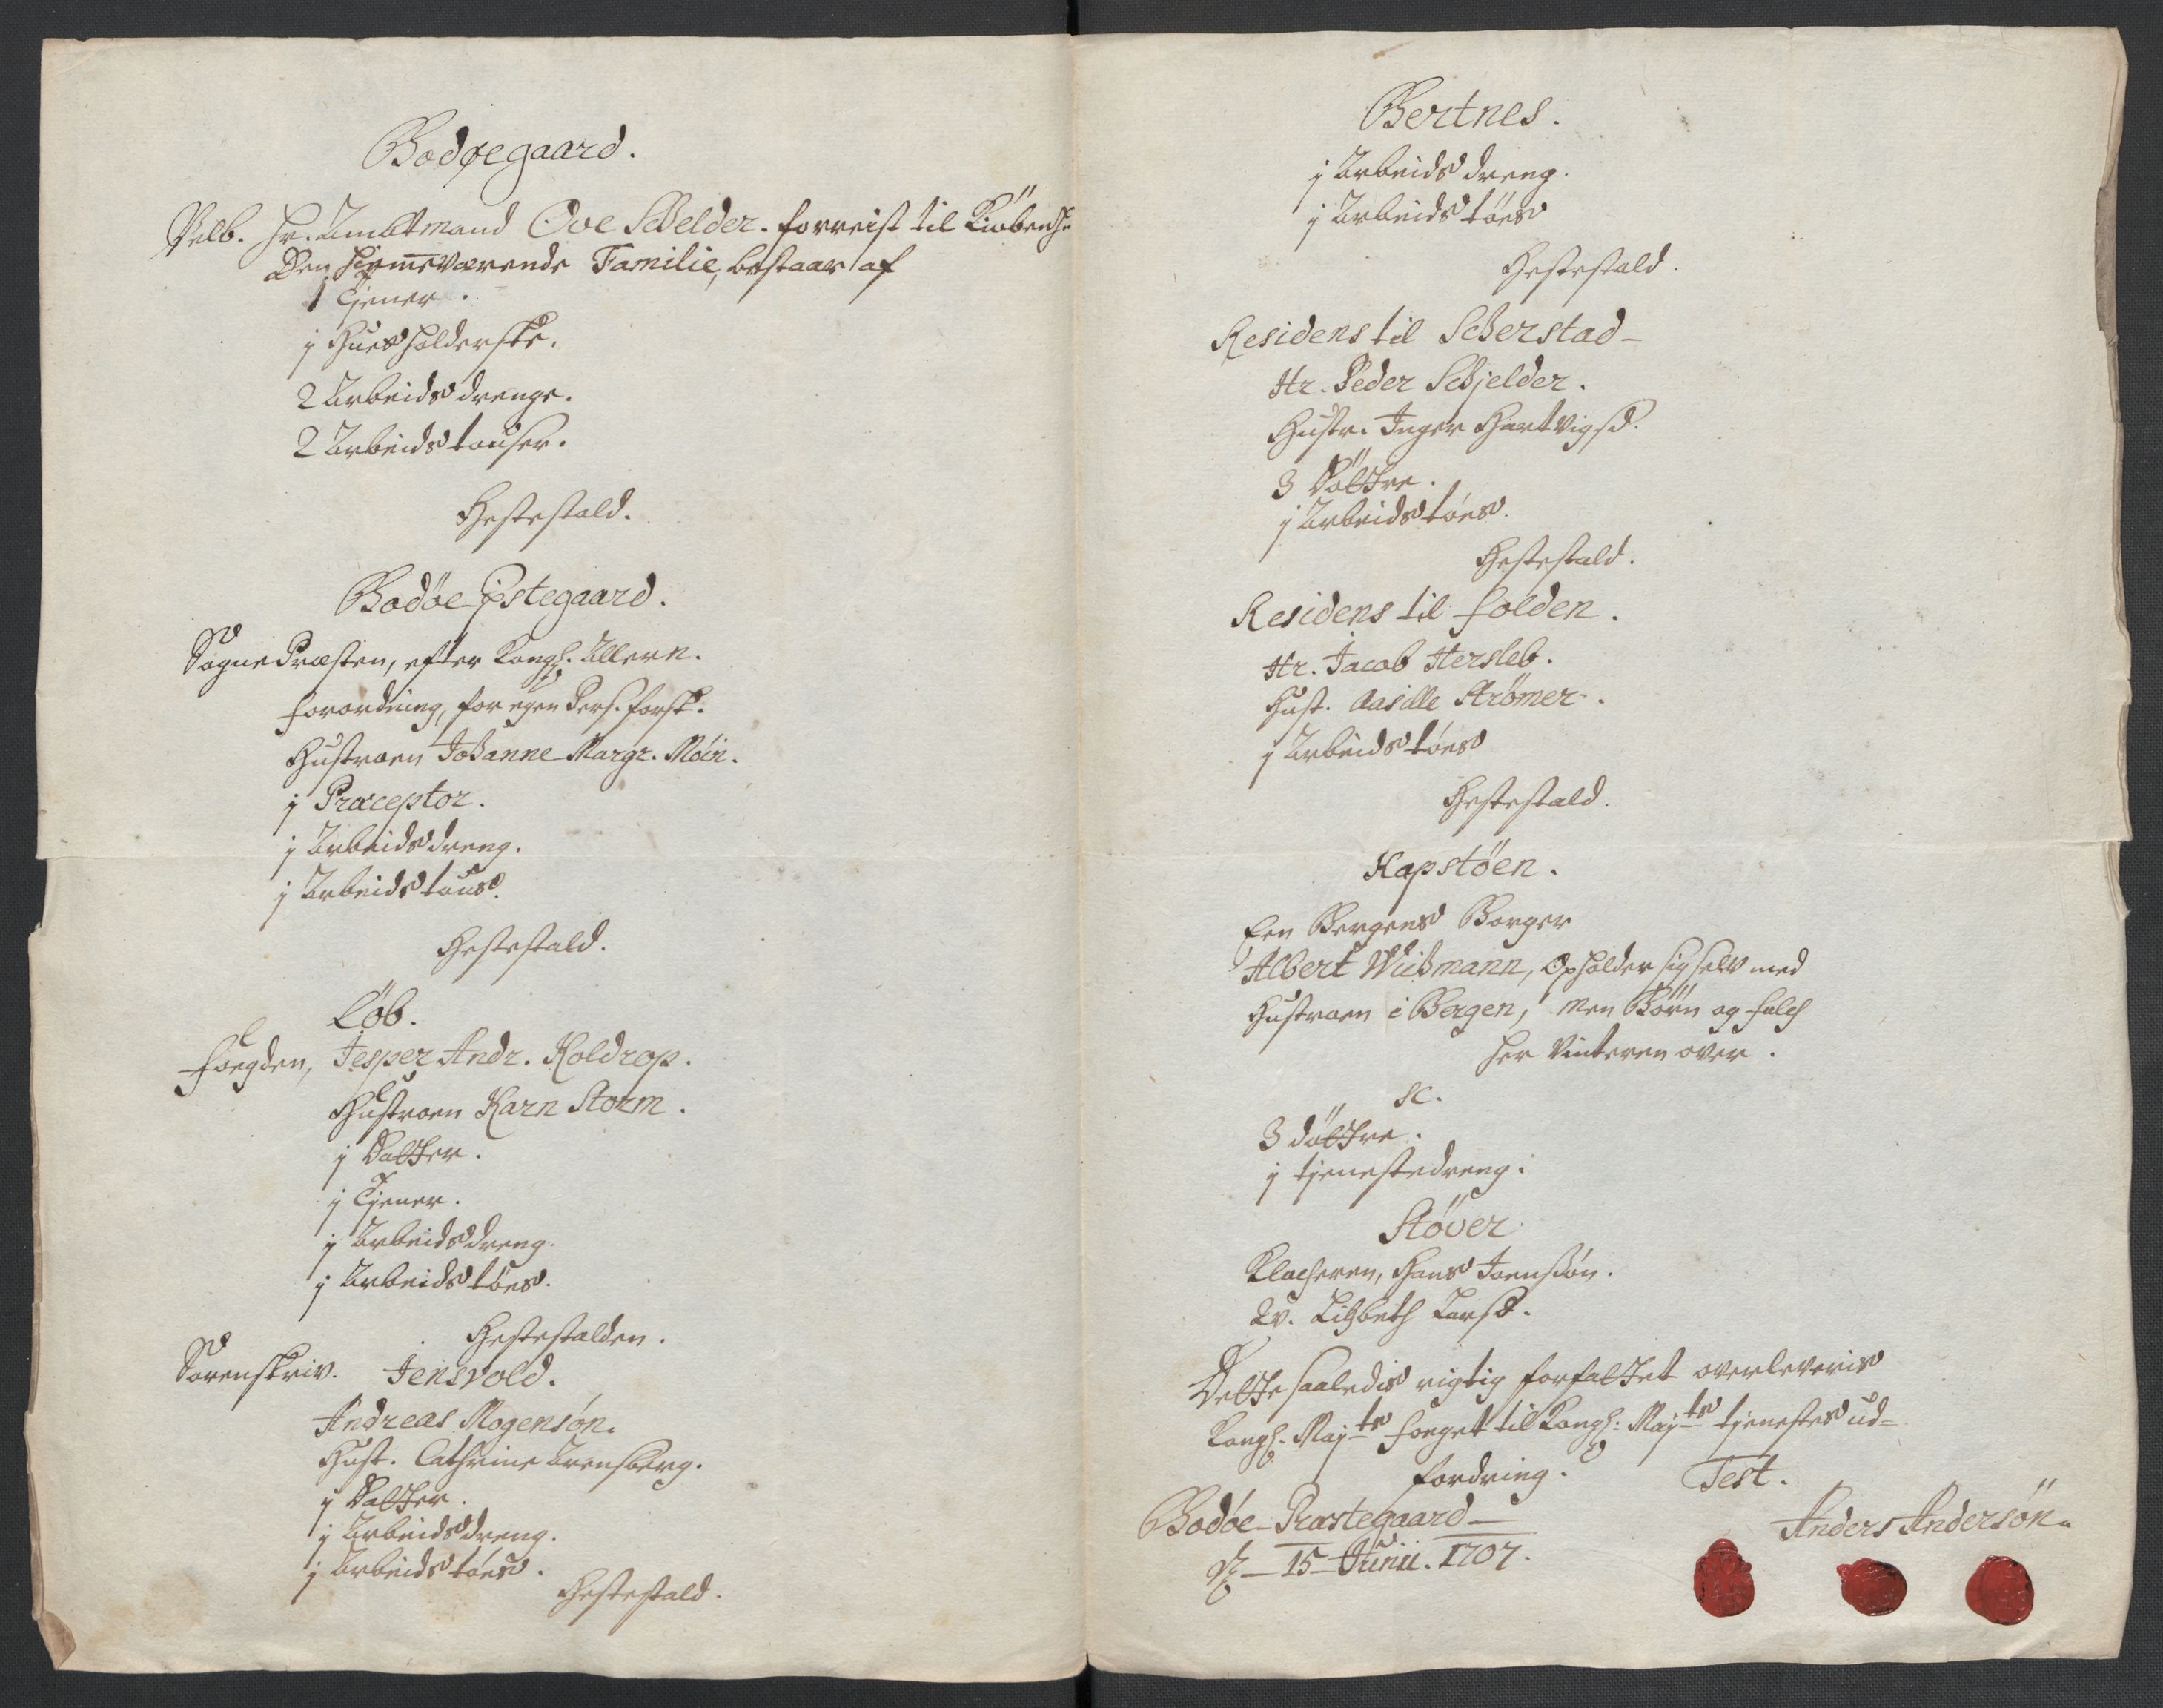 Bodøegaard.
Velb. Hr. Ambtmand Ove Schelder. forreist til Kiøbenh.
Den hiemeværende Familie, bestaar af
1 Tjener.
j Huusholderske.
2 Arbeids drenge.
2 Arbeids touser.
Hestestald.
Bodøe-Pstegaard.
SognePræsten, efter Kongl. Allern.
forordning, for egen Pers. forsk.
Hustruen Johanne Margr. Moin.
j Præceptor.
j Arbeids dreng.
j Arbeids tous.
Hestestald.
Løb.
Foegden, Jesper Andr. Holdrop.
Hustruen Karn Storm.
j Datter.
j Tjener.
j Arbeids dreng.
j Arbeids tøes.
Hestestalden.
Sorenskriv. Jensvold.
Andreas Mogensøn.
Hust. Cathrine Arensberg.
j Datter.
j Arbeids dreng.
j Arbeids tøes.
Hestestald.
Bertnes.
j Arbeids dreng.
j Arbeids tøes
Hestestald.
Residens til Scherstad-
Hr. Peder Schjelder.
Hustr. Inger Hartvigsd.
3 Døttre.
j Arbeids tøes.
Hestestald.
Residens til folden.
Hr. Jacob Hersleb.
Hust. Aasille Strømer.
j Arbeids tøes
Hestestald.
Hapstøen.
Een Bergens Borger
Albert Wichmann, Opholder sig selv med
Hustruen i Bergen, men Børn og folch
her Vinteren over.
sc.
3 døttre.
j tjenestedreng.
Støver
Klocheren, Hans Joensøn.
Qv. Lisbeth Larsd.
Dette saaledis rigtig forfattet overleveris
Kongl. Mayts Foeget til Kongl: Mayts tjenestes ud-
fordring.
Test.
Bodøe-Præstegaard-
d. 15 Junii. 1707.
Anders Andersøn.